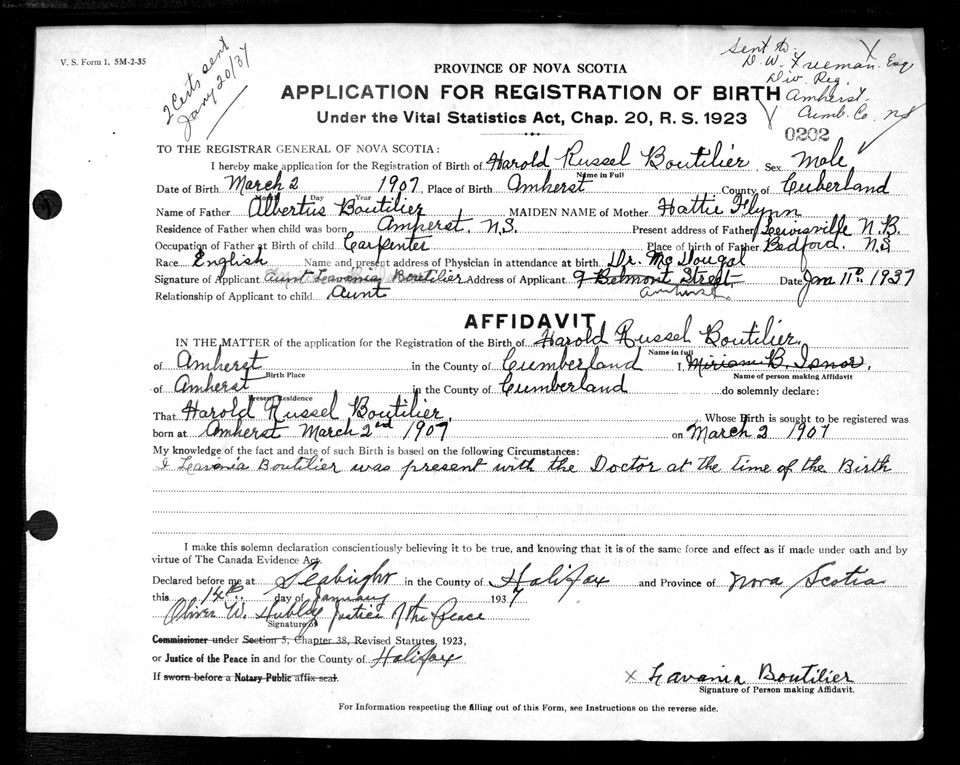 V. S. Form 1. 5M-2-35
2 Certs sent
Jany 20/37
Sent to
D. W. Freeman. Esq
Div. Reg.
Amherst.
Cumb. Co. NS
PROVINCE OF NOVA SCOTIA
APPLICATION FOR REGISTRATION OF BIRTH
Under the Vital Statistics Act, Chap. 20, R. S. 1923
0202
TO THE REGISTRAR GENERAL OF NOVA SCOTIA:
I hereby make application for the Registration of Birth of Harold Russel Boutilier, Sex Male
Name in Full
Date of Birth March 2 1907, Place of Birth Amherst County of Cuberland
Month Day Year
Name of Father Albertus Boutilier MAIDEN NAME of Mother Hattie Flynn
Residence of Father when child was born Amherst. N.S. Present address of Father Lewisville N.B.
Occupation of Father at Birth of child Carpenter Place of birth of Father Bedford. N.S
Race English Name and present address of Physician in attendance at birth Dr. Mc Dougal
Signature of Applicant Aunt Leavania Boutilier Address of Applicant 9 Belmont Street Date Jan 11th 1937
Amherst.
Relationship of Applicant to child Aunt
AFFIDAVIT
IN THE MATTER of the application for the Registration of the Birth of Harold Russel Boutilier.
Name in full
of Amherst in the County of Cumberland I, Miriam B. Isnor,
Birth Place Name of person making Affidavit
of Amherst in the County of Cumberland do solemnly declare:
Present Residence
That Harold Russel Boutilier, Whose Birth is sought to be registered was
born at Amherst March 2nd 1907 on March 2 1907
My knowledge of the fact and date of such Birth is based on the following Circumstances:
I Leavania Boutilier was present with the Doctor at the time of the Birth
I make this solemn declaration conscientiously believing it to be true, and knowing that it is of the same force and effect as if made under oath and by
virtue of The Canada Evidence Act.
Declared before me at Seabright in the County of Halifax and Province of Nova Scotia
this 14th. day of January 1937
Oliver W. Hubley Justice of the Peace
Signature of
Commissioner under Section 5, Chapter 38, Revised Statutes, 1923,
or Justice of the Peace in and for the County of Halifax
If sworn before a Notary Public affix seal.
X Lavania Boutilier
Signature of Person making Affidavit.
For Information respecting the filling out of this Form, see Instructions on the reverse side.